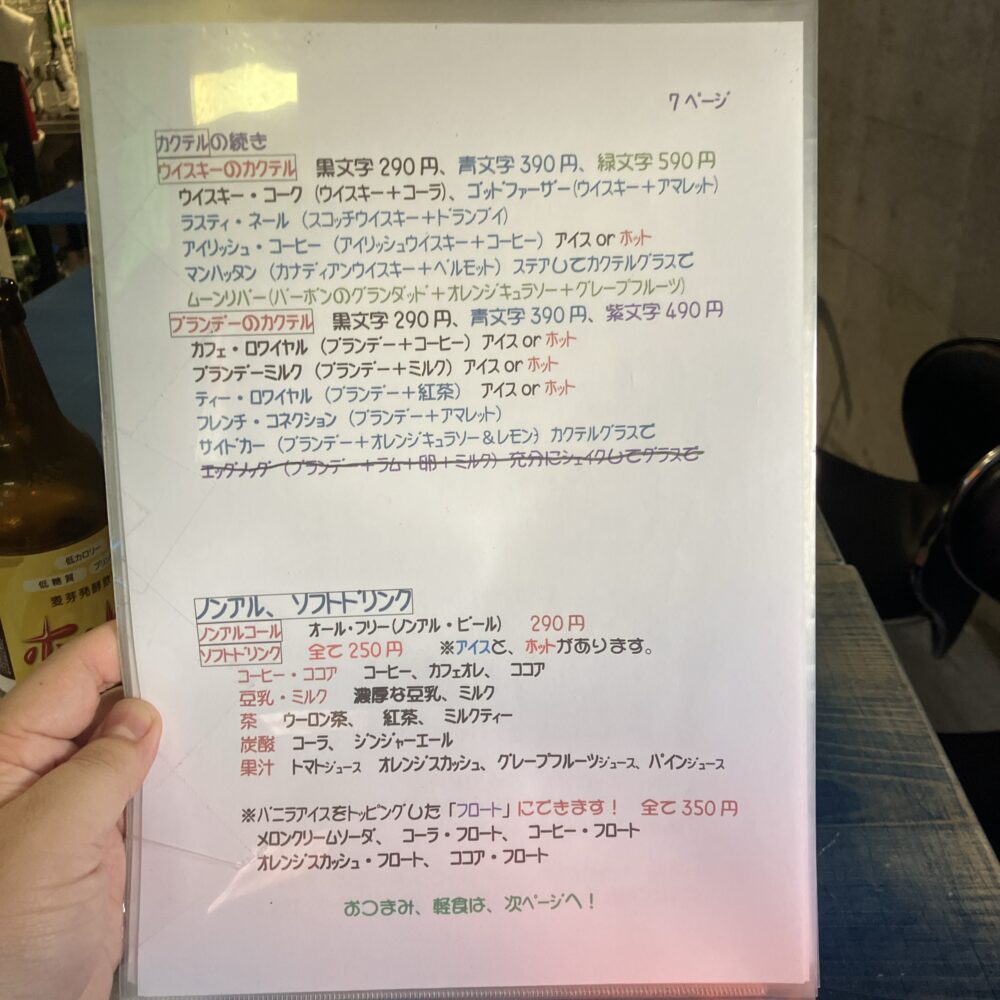 7ページ
カクテルの続き
ウイスキーのカクテル 黒文字290円、青文字390円、緑文字590円
ウイスキー・コーク（ウイスキー＋コーラ）、ゴッドファーザー（ウイスキー＋アマレット）
ラスティ・ネール（スコッチウイスキー＋ドランブイ）
アイリッシュ・コーヒー（アイリッシュウイスキー＋コーヒー）アイス or ホット
マンハッタン（カナディアンウイスキー＋ベルモット）ステアしてカクテルグラスで
ムーンリバー（バーボンのグランダッド＋オレンジキュラソー＋グレープフルーツ）
ブランデーのカクテル 黒文字290円、青文字390円、紫文字490円
カフェ・ロワイヤル（ブランデー＋コーヒー）アイス or ホット
ブランデーミルク（ブランデー＋ミルク）アイス or ホット
ティー・ロワイヤル（ブランデー＋紅茶） アイス or ホット
フレンチ・コネクション（ブランデー＋アマレット）
サイドカー（ブランデー＋オレンジキュラソー＆レモン）カクテルグラスで
エッグノッグ（ブランデー＋ラム＋卵＋ミルク）充分にシェイクしてグラスで
ノンアル、ソフトドリンク
ノンアルコール オール・フリー（ノンアル・ビール） 290円
ソフトドリンク 全て250円 ※アイスと、ホットがあります。
コーヒー・ココア コーヒー、カフェオレ、ココア
豆乳・ミルク 濃厚な豆乳、ミルク
茶 ウーロン茶、紅茶、ミルクティー
炭酸 コーラ、ジンジャーエール
果汁 トマトジュース オレンジスカッシュ、グレープフルーツジュース、パインジュース
※バニラアイスをトッピングした「フロート」にできます！ 全て350円
メロンクリームソーダ、コーラ・フロート、コーヒー・フロート
オレンジスカッシュ・フロート、ココア・フロート
おつまみ、軽食は、次ページへ！
低カロリー
低糖質
麦芽発酵